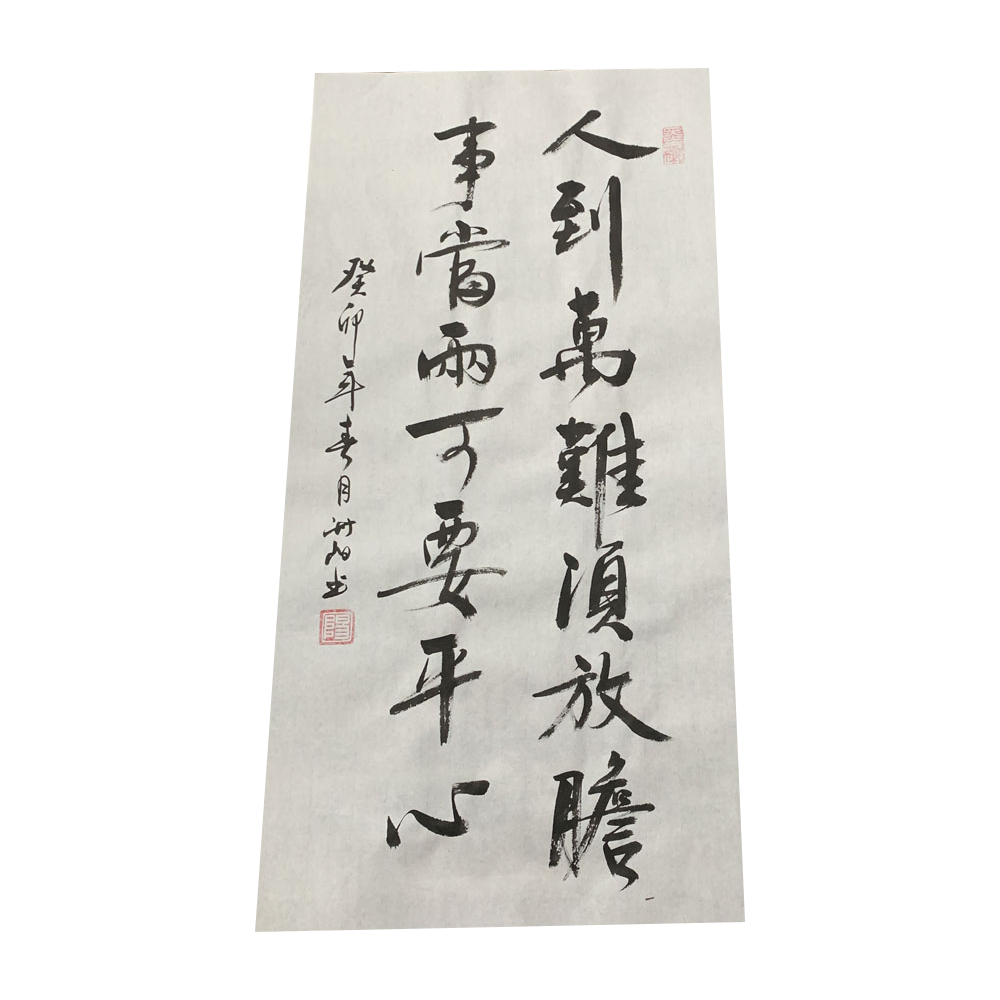 人到萬難須放膽
事當兩可要平心
癸卯年春月
书